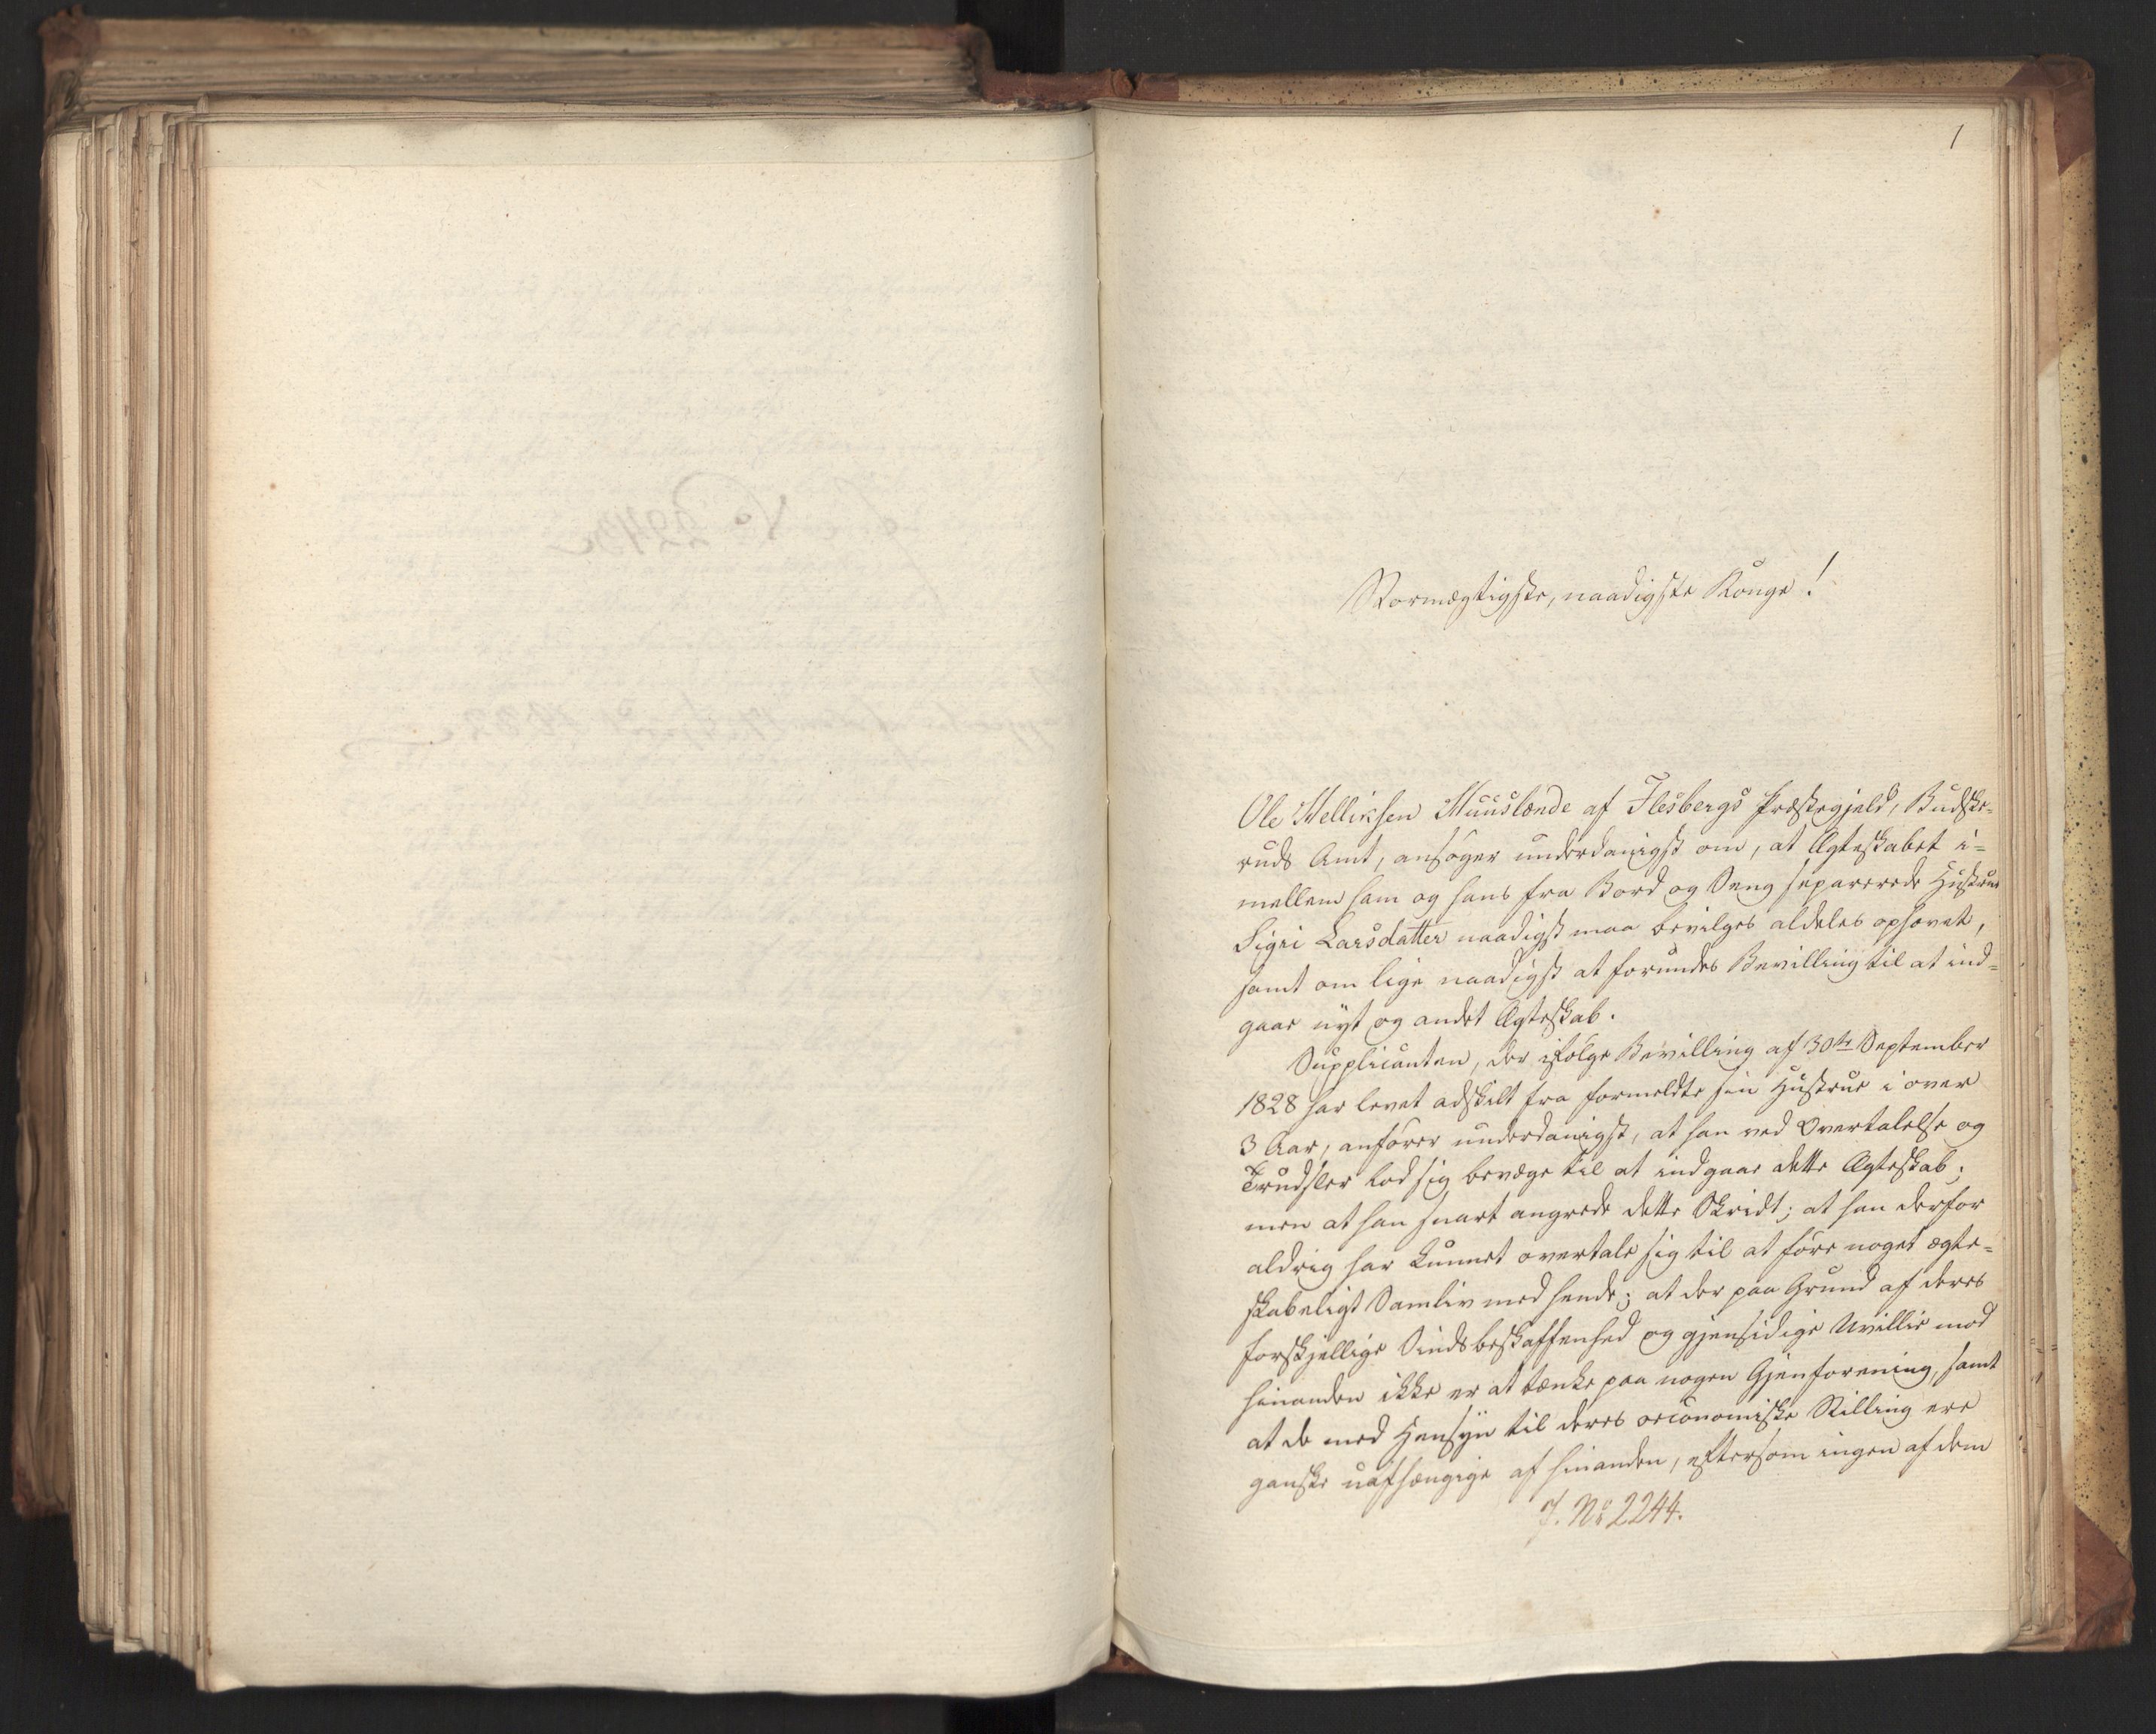 1
Stormægtigste, naadigste Konge!
Ole Helliksen Muuslænde af Flesbergs Præstegjeld, Budske-
ruds Amt, ansøger underdanigst om, at Ægteskabet i-
mellem ham og hans fra Bord og Seng separerede Hustrue
Sigri Larsdatter naadigst maa bevilges aldeles ophævet,
samt om lige naadigst at forundes Bevilling til at ind-
gaae nyt og andet Ægteskab.
Supplicanten, der ifølge Bevilling af 30te September
1828 har levet adskilt fra formeldte sin Hustrue i over
3 Aar, anfører underdanigst, at han ved Overtalelse og
Trudsler lod sig bevæge til at indgaae dette Ægteskab;
men at han snart angrede dette Skridt; at han derfor
aldrig har kunnet overtale sig til at føre noget ægte-
skabeligt Samliv med hende; at der paa Grund af deres
forskjellige Sindsbeskaffenhed og gjensidige Uvillie mod
hinanden ikke er at tænke paa nogen Gjenforening, samt
at de med Hensyn til deres oeconomiske Stilling ere
ganske uafhængige af hinanden, eftersom ingen af dem
J. No 2244.